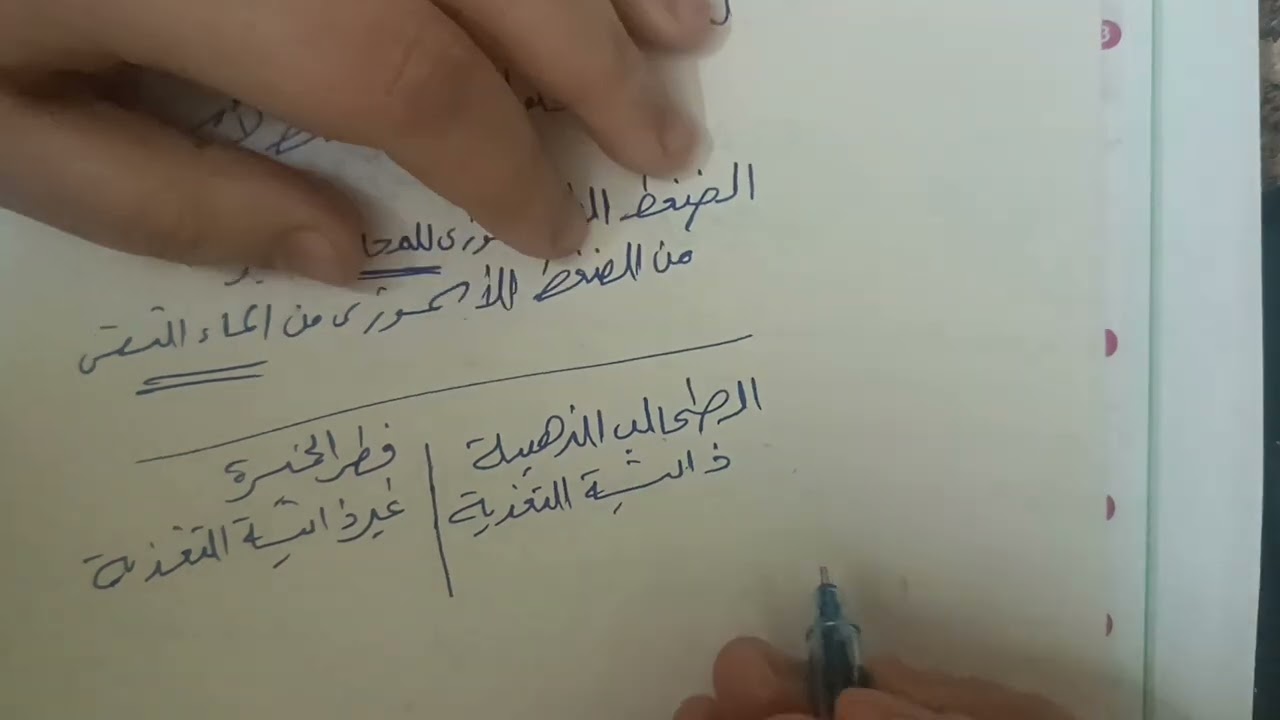 الضغط للمحا
من الضغط الأسموزى من الماء النقى
الطحالب الذهبية
ذاتية التغذية
فطر الخميرة
غير ذاتية التغذية